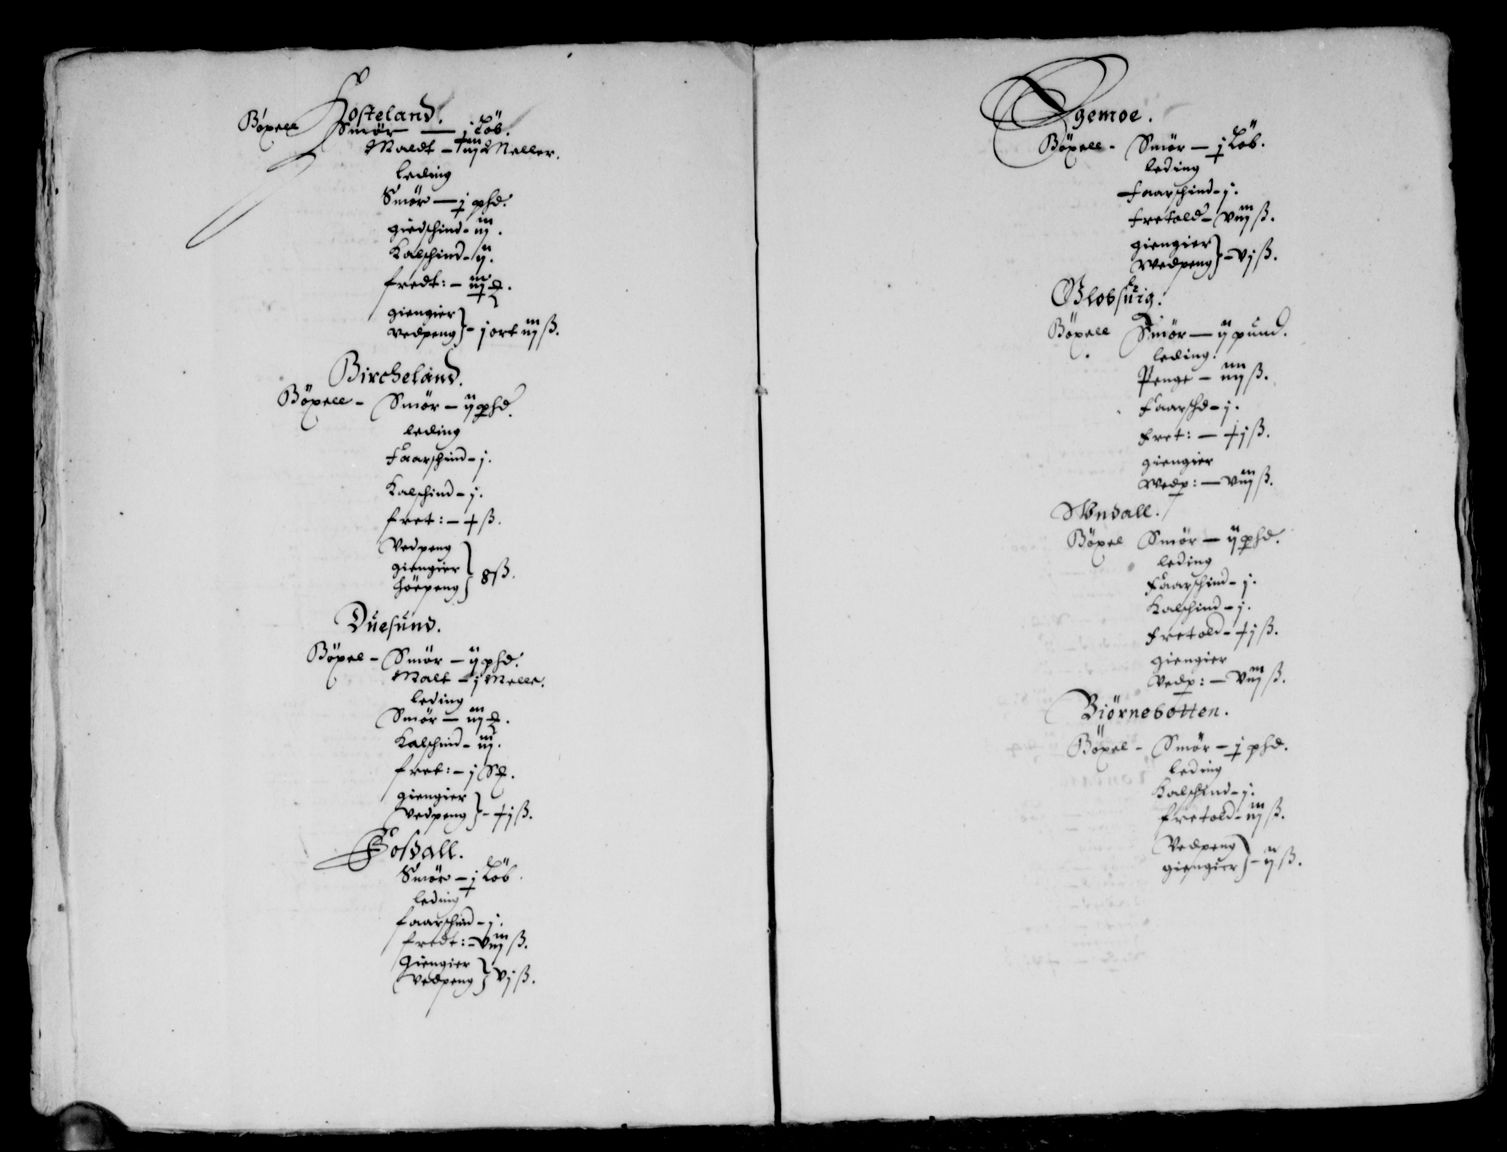 Hosteland.
Böxell Smör — j Löb.
Maldt — iij Meller.
leding
Smör — j phd.
giedschind - iij.
Kalschind - ij.
fredt: — iij
giengier
vedpeng } - j ort iij ß.
Bircheland.
Böxell - Smör — ij phd.
leding
Faarschind - j.
Kalschind - j.
fret: — x ß.
Vedpeng
giengier
höepeng } 8 ß.
Duesund.
Böxel - Smör — ij phd.
Malt — j Melle.
leding
Smör — iij
Kalschind - iij.
fret: — j
giengier
Vedpeng } - xj ß.
Fosdall.
Smör — j Löb.
leding
faarschind - j.
fredt: - viij ß.
Giengier
Vedpeng } vj ß.
Ygemoe.
Böxell - Smör — j Löb.
leding
Faarschind - j.
fretold - viij ß.
giengier
Wedpeng } - vj ß.
Böxell Smör — ij pund.
leding.
Penge — iiij ß.
Faarshd - j.
fret: — xj ß.
giengier
Wedp: — viij ß.
Böxel Smör — ij phd.
leding
Faarschind - j.
Kalschind - j.
fretold - xj ß.
giengier
Vedp: — viij ß.
Biörnebotten.
Böxel - Smör — j phd.
leding
Kalschind - j.
fretold - iij ß.
Vedpeng
giengier } - ij ß.